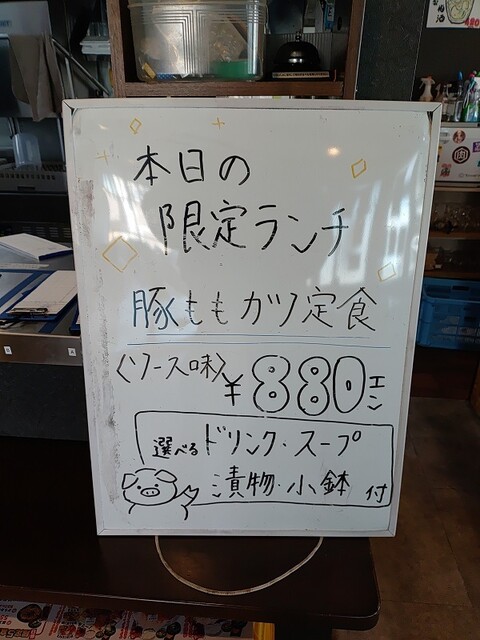 本日の
限定ランチ
豚ももカツ定食
〈ソース味〉¥880エン
選べるドリンク・スープ
漬物・小鉢 付